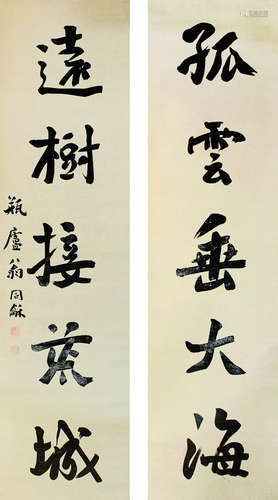 孤雲垂大海
遠樹接荒城
瓶廬翁同龢